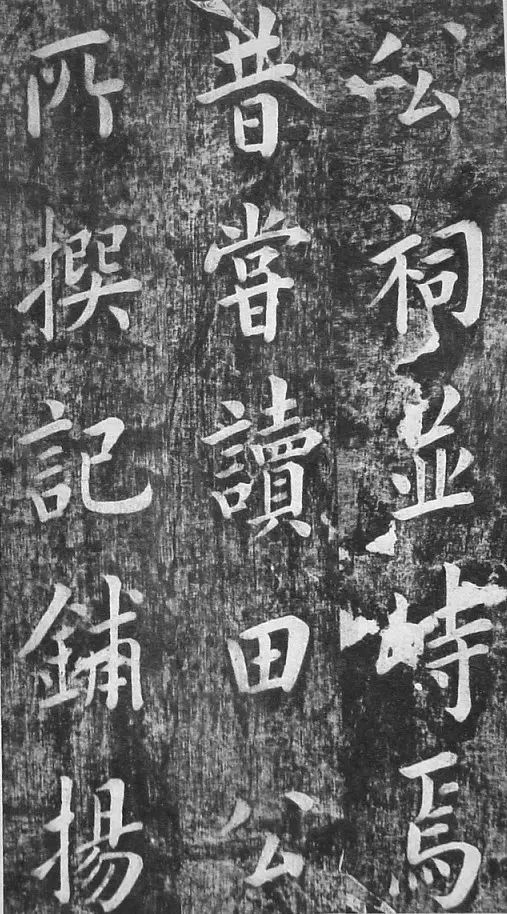 公祠並峙焉
昔甞讀田公
所撰記鋪揚